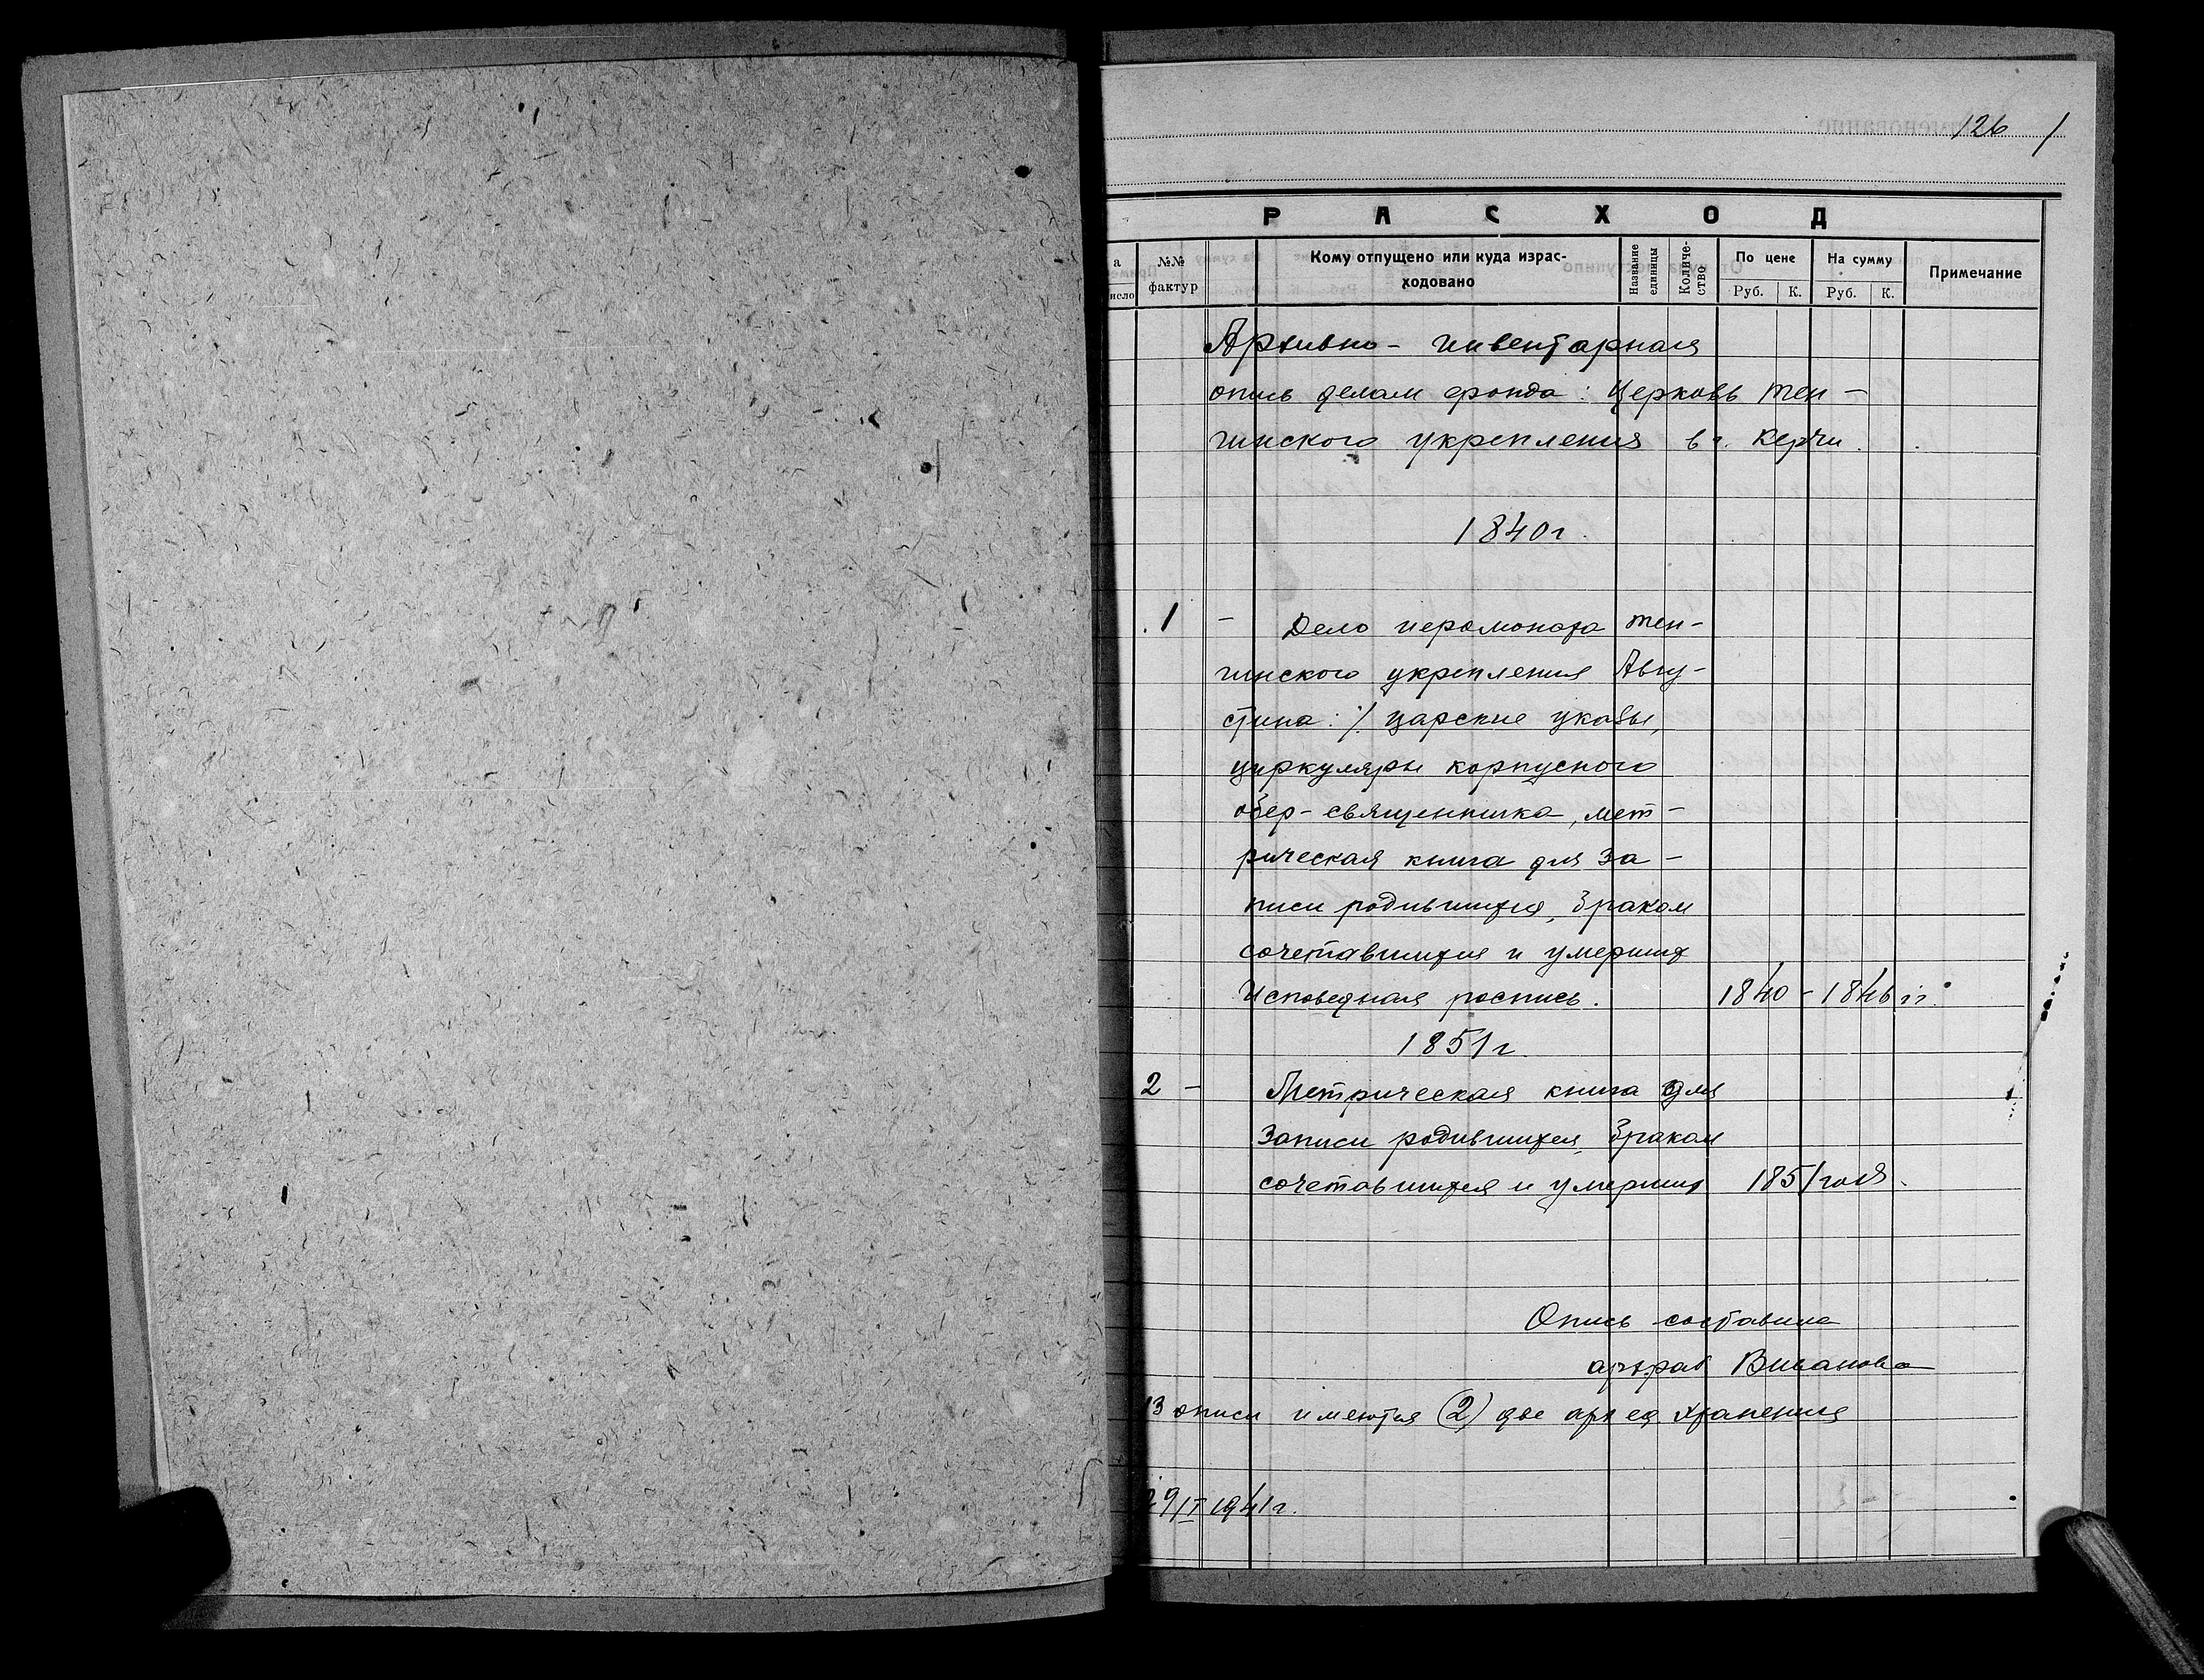 126 1
РАСХОД
а
число
№№ фактур
Кому отпущено или куда израс-
ходовано
Название единицы
Количе-
ство
По цене
Руб. К.
На сумму
Руб. К.
Примечание
Архивно - инвентарная
опись делам фонда: Церковь Тен-
гинского укрепления в г. Керчи.
1840 г.
1 - Дело иеромонаха Тен-
гинского укрепления Авгу-
стина: царские указы,
циркуляры корпусного
обер-священника, мет-
рическая книга для за-
писи родившихся, браком
сочетавшихся и умерших
Исповедная роспись. 1840 - 1846 гг.
1851 г.
2 - Метрическая книга для
записи родившихся, браком
сочетавшихся и умерших 1851 года.
Опись составила
арх.раб Виванова
В описи имеются (2) две арх ед хранения
1941 г.